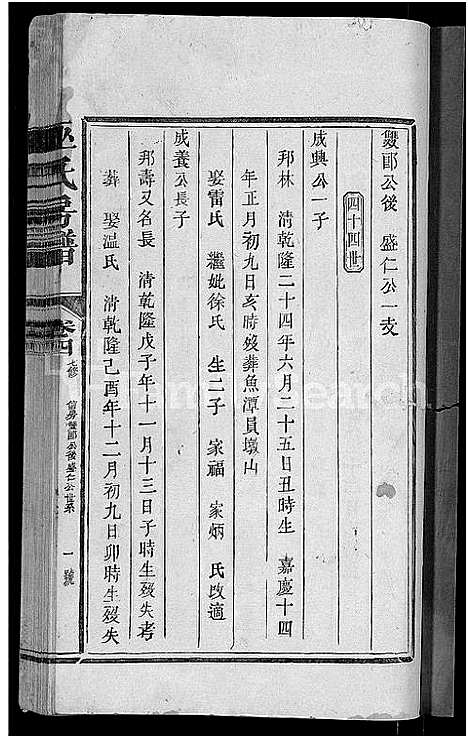 雙郎公後　盛仁公一支
四十四世
成興公一子
邦林　清乾隆二十四年六月二十五日丑時生　嘉慶十四
年正月初九日亥時歿葬魚潭員墩山
娶雷氏　繼妣徐氏　生二子　家福　家炳　氏改適
成養公長子
邦壽又名長　清乾隆戊子年十一月十三日子時生歿失考
葬　娶温氏　清乾隆己酉年十二月初九日卯時生歿失
氏房譜
卷四
七修
公後盛仁公世系
一號